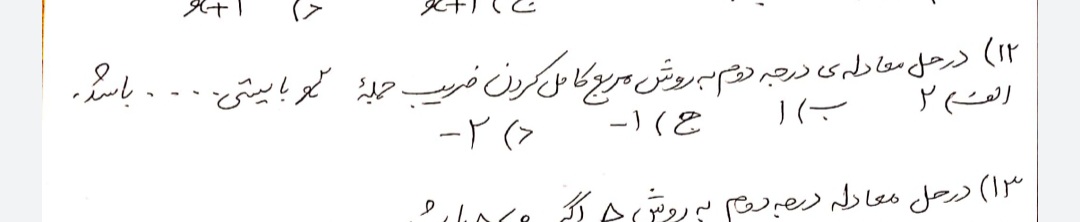 ج) x+1 د) x+1
۱۲) در حل معادله ی درجه دوم به روش مربع کامل کردن ضریب جمله x² بایستی .... باشد.
الف) ۲ ب) ۱ ج) -۱ د) -۲
۱۳) در حل معادله درجه دوم به روش Δ اگر